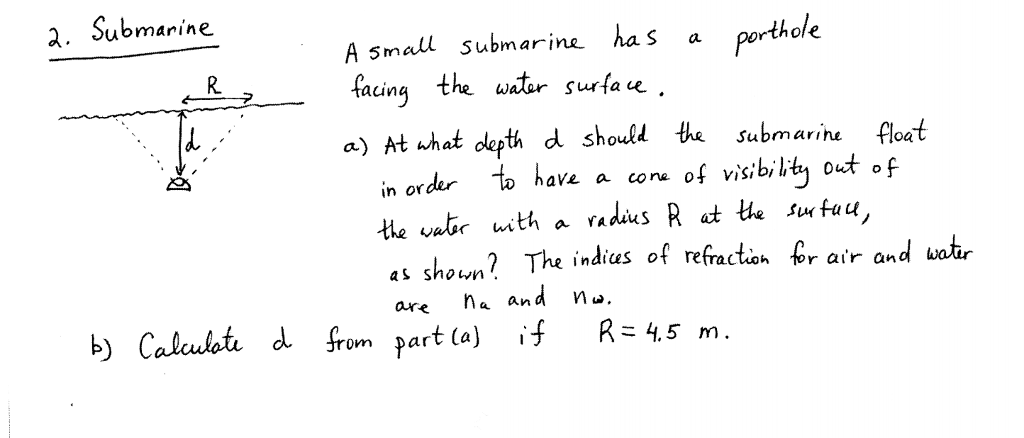 2. Submarine
R
d
A small submarine has a porthole
facing the water surface.
a) At what depth d should the submarine float
in order to have a cone of visibility out of
the water with a radius R at the surface,
as shown? The indices of refraction for air and water
are na and nw.
b) Calculate d from part (a) if R = 4.5 m.